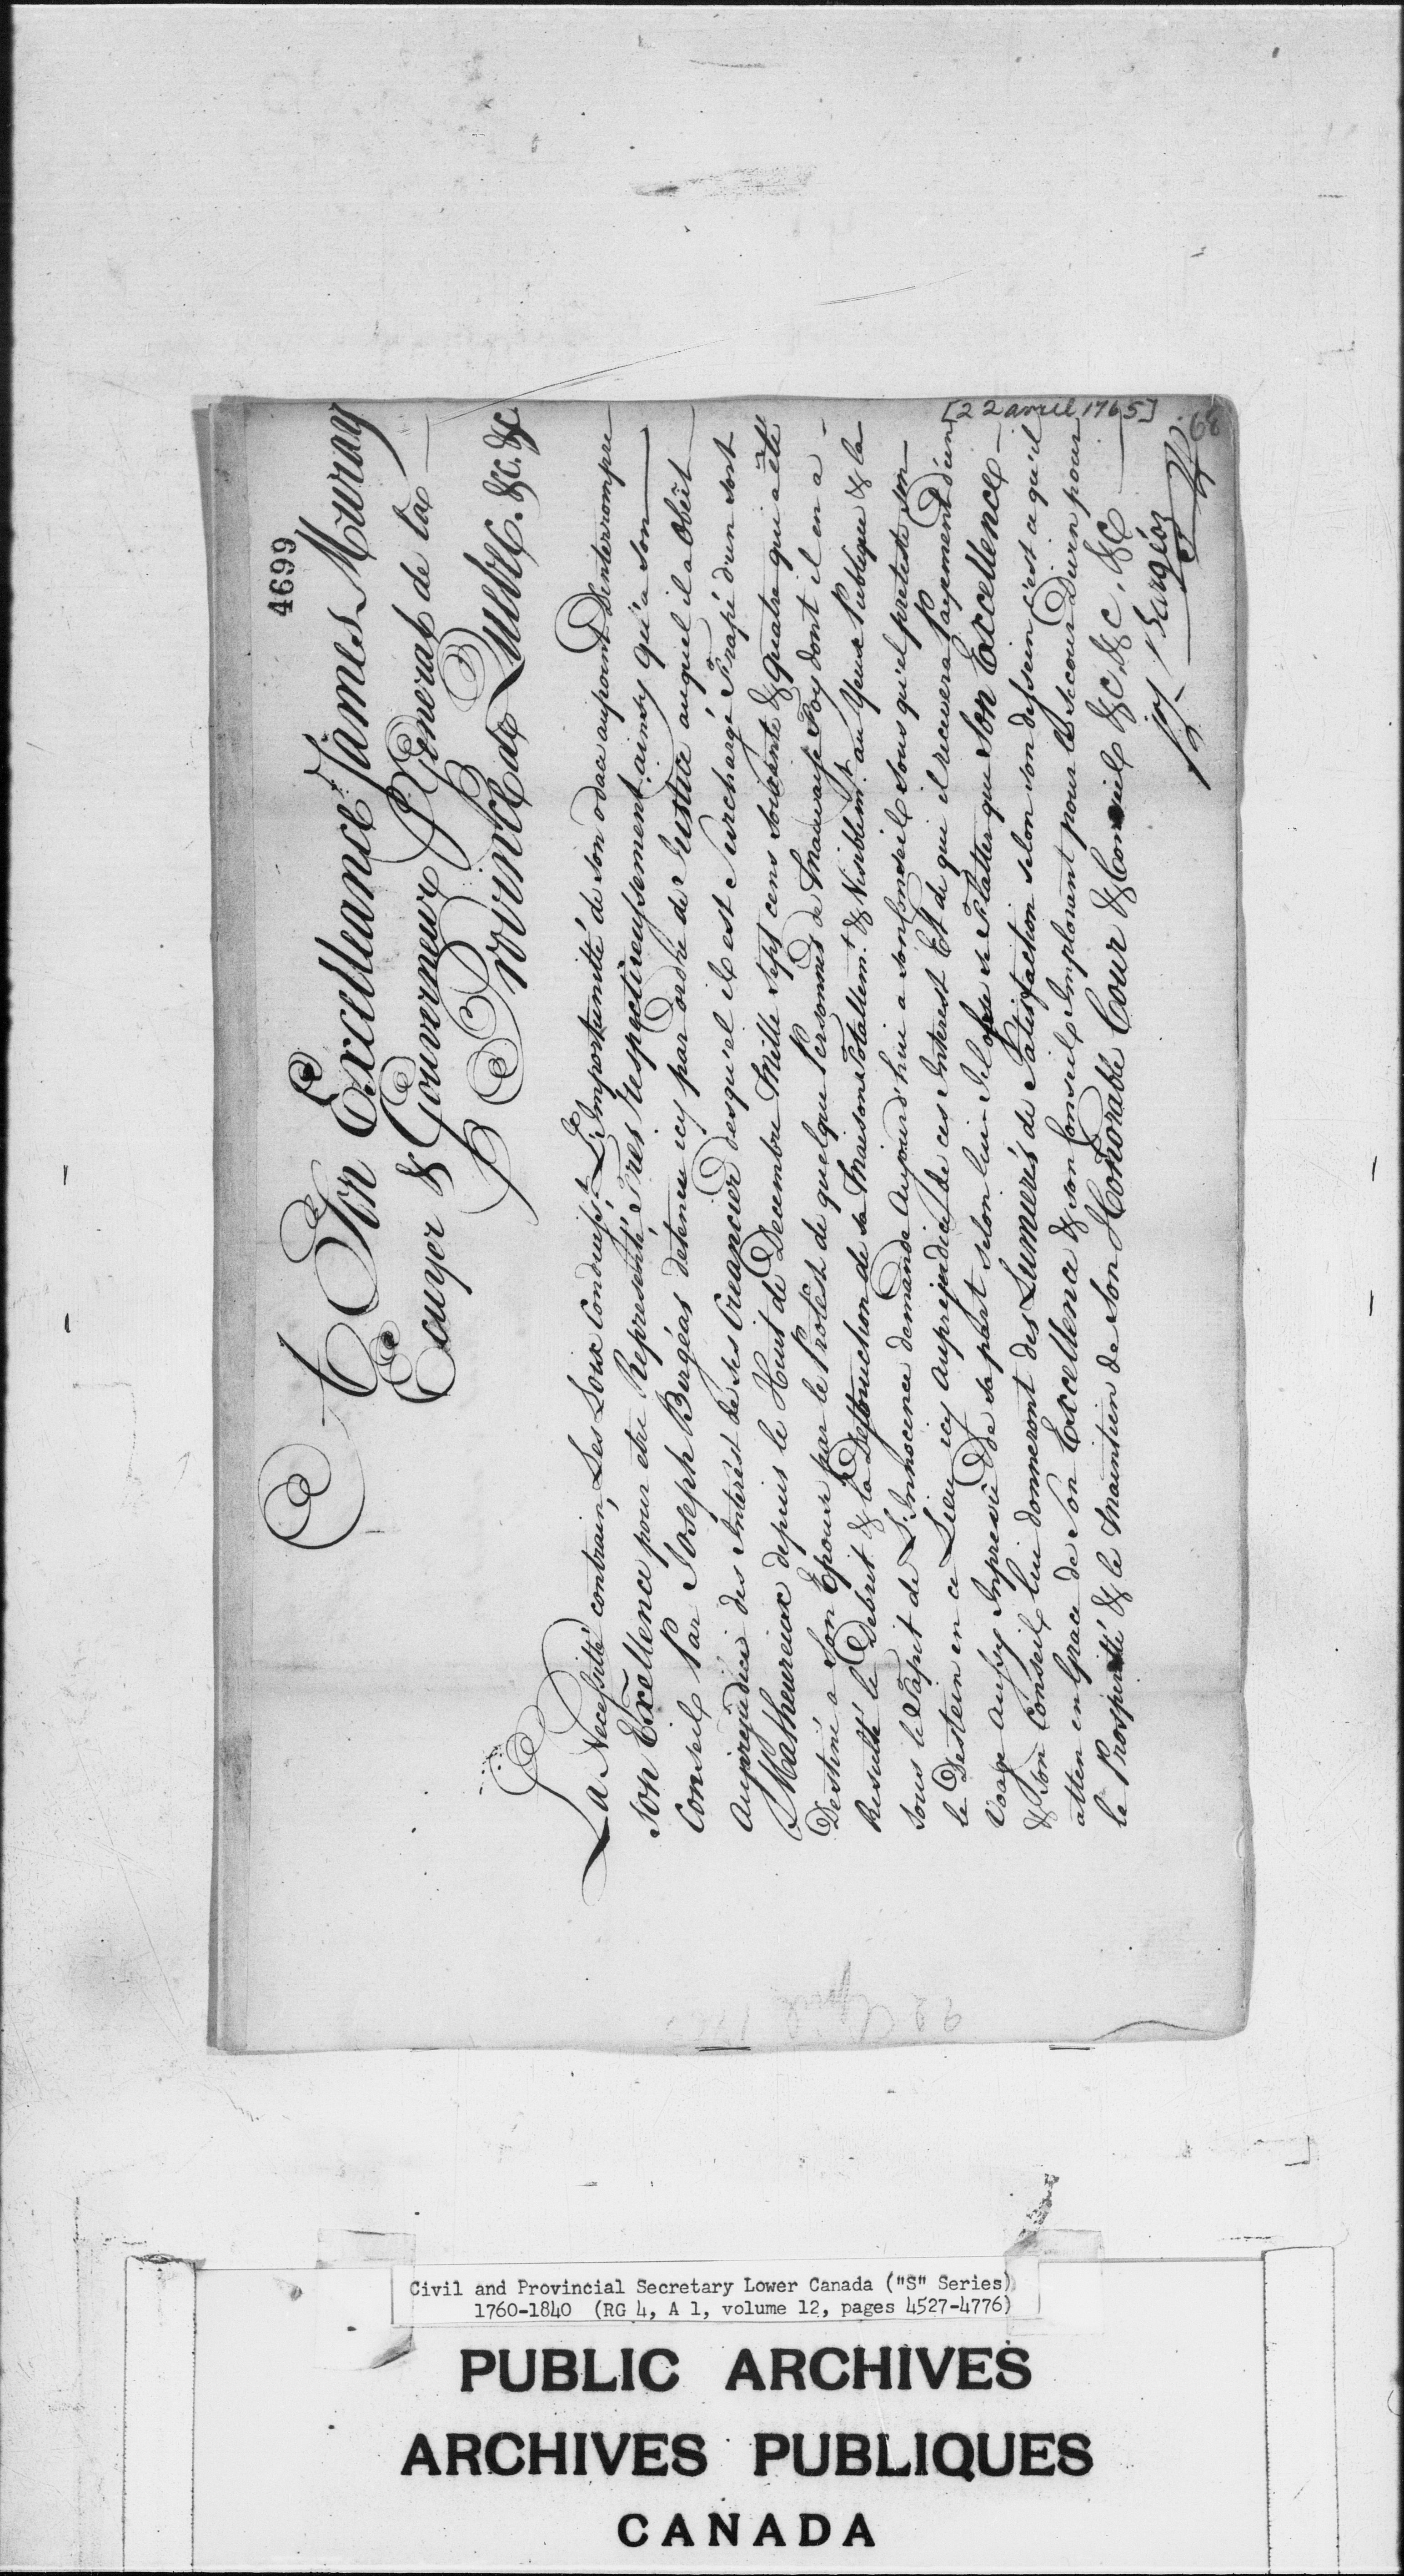 4699
A Son Excelleance James Muray
Ecuyer & Gouverneur General de la
Province de Quebec. &c. &c
[22 avril 1765]
68
La Necessitté contrain, Les Loix Conduiss.t L'Importunitté de son odace au point D'interrompre
son Excellence pour etre Representé Tres Respectieussement ainsy qu'a son
Conseil Par Joseph Bargéas detenu icy par ordre de Justice auquel il a obeït
au prejudice des Interest de ses Creancier desqu'el il est Surchargé Frapé d'un sort
Malheureux depuis le Huit de Decembre Mille sept cens soixante & quatre qui a été
Destiné a Son Epouse par le Protest de quelque Personnes de Mauvaise Foy dont il en a
Resulté le Debrit & la Desttruction de sa Maison Totallem.t & Visiblem.t au Yeux Publique & la
sous le Tapit de L'Innocence demande Aujourd'hui a son Conseil sous qu'el preteste son
le Destein en ce Lieu icy au prejudice de ces Interest Et de qui il recevera Payement d'un
Voage aussy Inprevü de sa part selon lui Il ose se Flatter que Son Excellence
& Son Conseil lui donneront des Lumierés de Satisfaction selon son dessein c'est ce qu'il
atten en Grace de Son Excellence & son Conseil Implorant pour les secour Divin pour
la Prosperité & le Maintien de Son Honorable Cour & Conseil &c, &c, &c
Jos Bargéas
22 April 1765
Civil and Provincial Secretary Lower Canada ("S" Series)
1760-1840 (RG 4, A 1, volume 12, pages 4527-4776)
PUBLIC ARCHIVES
ARCHIVES PUBLIQUES
CANADA